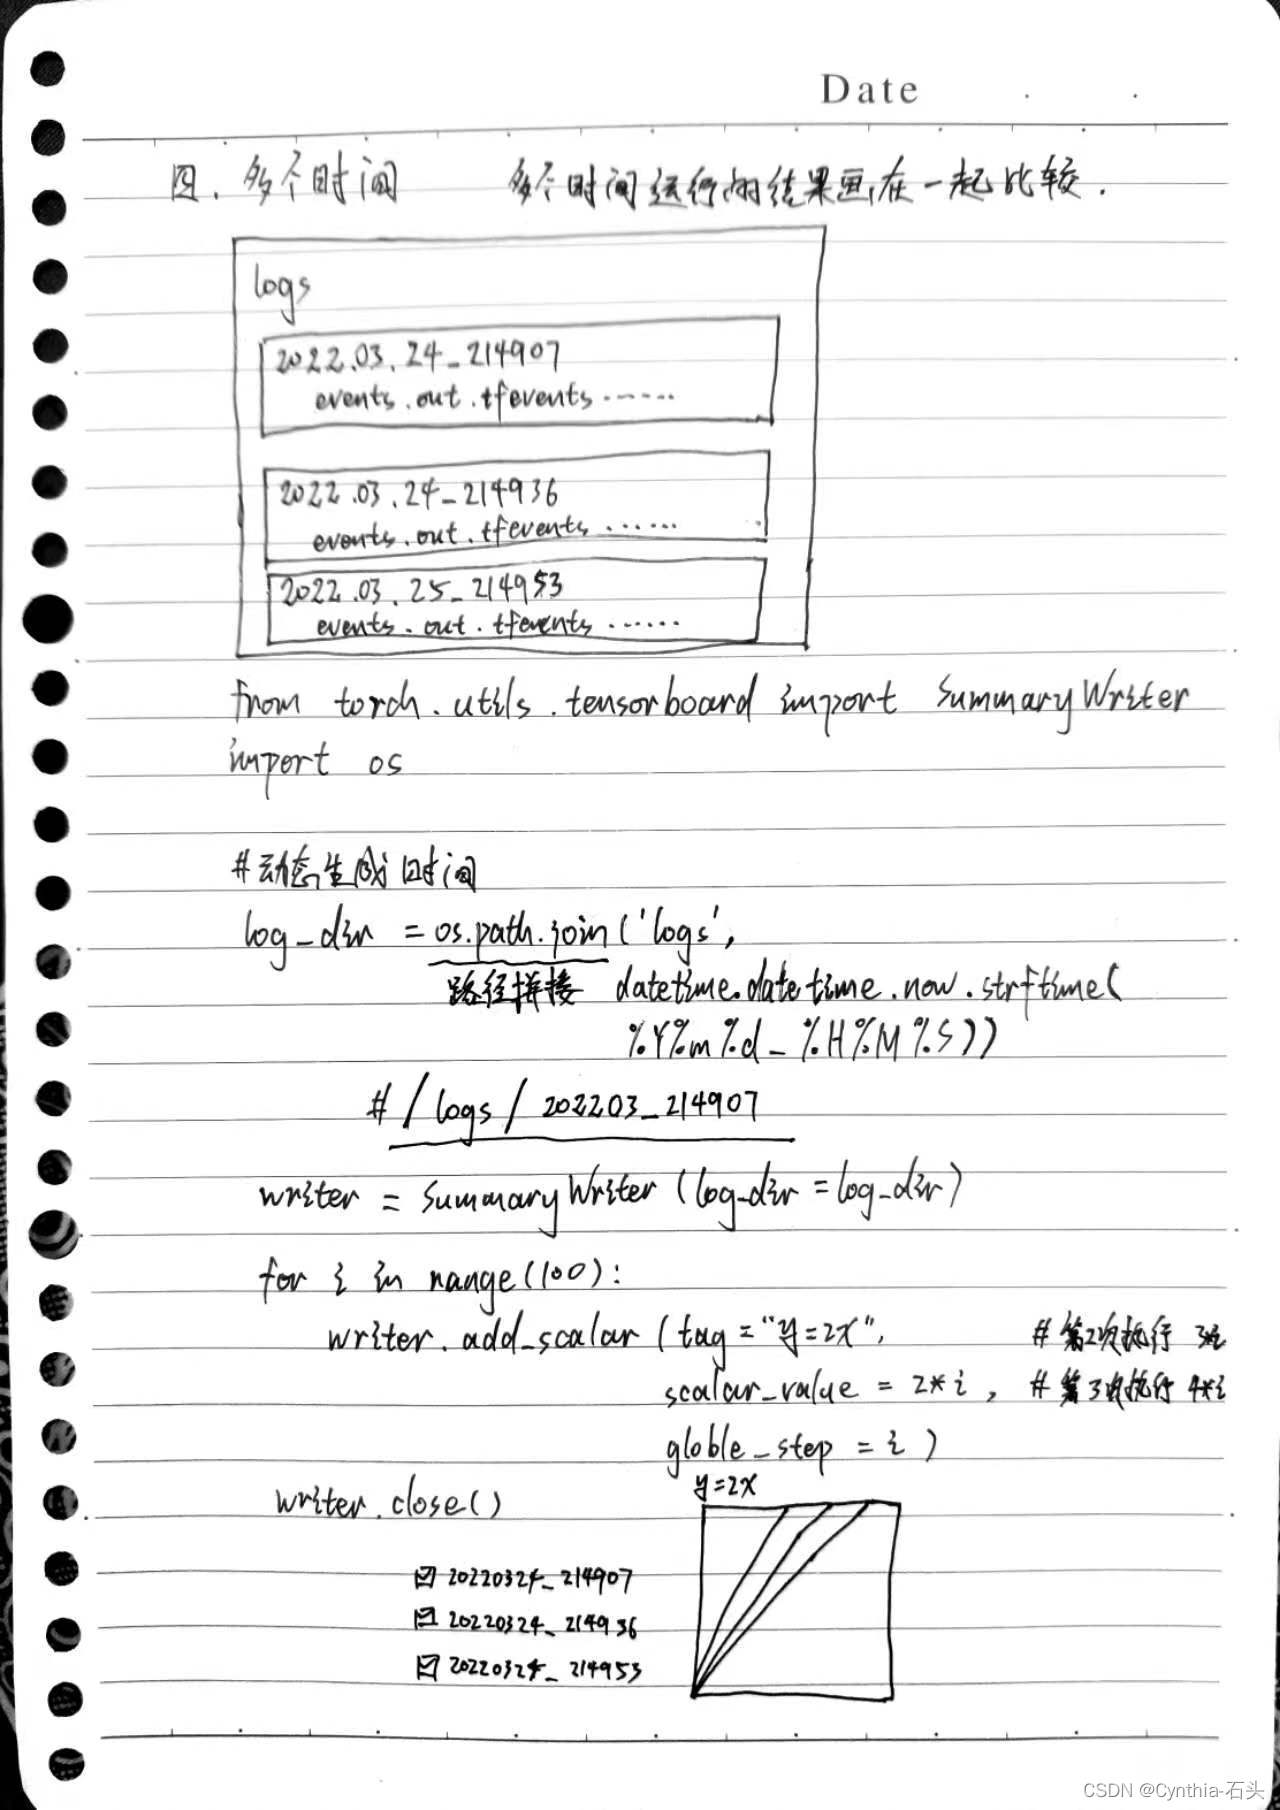 Date
四. 多个时间 多个时间运行的结果画在一起比较.
logs
2022.03.24_214907
events.out.tfevents......
2022.03.24_214936
events.out.tfevents......
2022.03.25_214953
events.out.tfevents......
from torch.utils.tensorboard import SummaryWriter
import os
#动态生成时间
log_dir = os.path.join('logs',
路径拼接 datetime.datetime.now.strftime(
%Y%m%d_%H%M%S))
# /logs/202203_214907
writer = SummaryWriter(log_dir=log_dir)
for i in range(100):
writer.add_scalar(tag="y=2x", #第2次执行 3*i
scalar_value = 2*i, #第3次执行 4*i
globle_step = i)
y=2x
writer.close()
☑ 20220324_214907
☑ 20220324_214936
☑ 20220324_214953
CSDN @Cynthia-石头